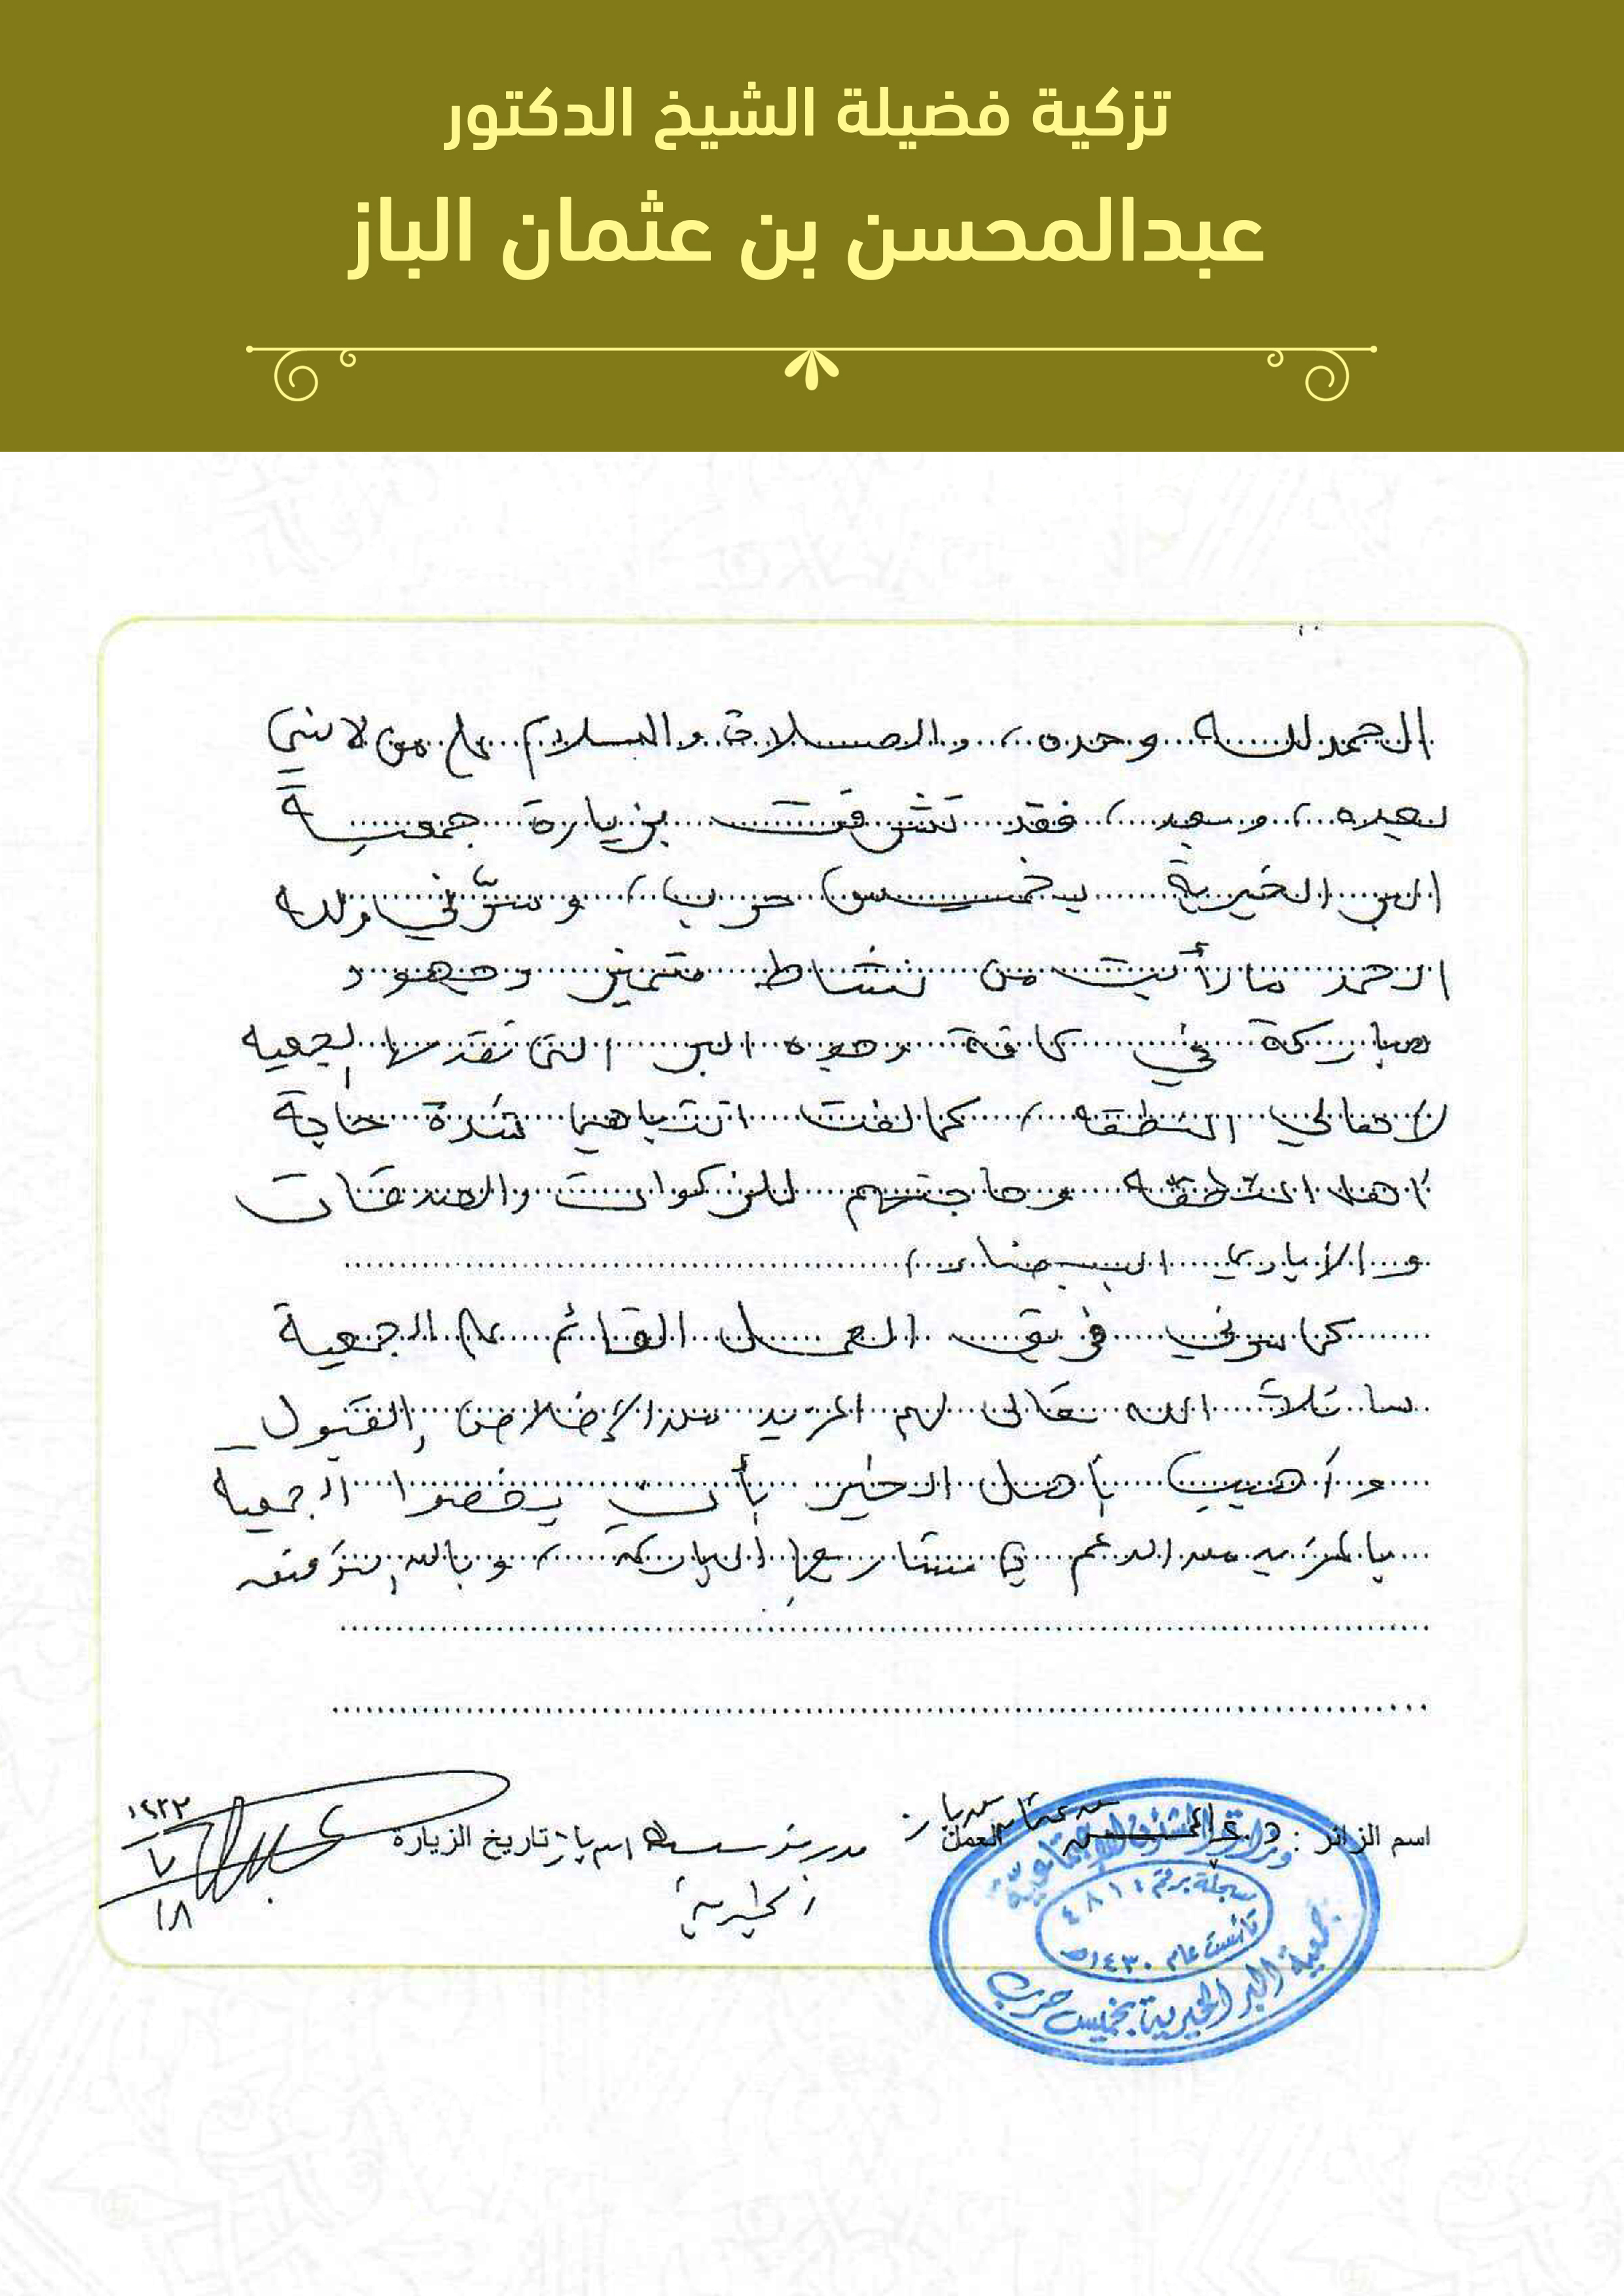 تزكية فضيلة الشيخ الدكتور
عبدالمحسن بن عثمان الباز
الحمد لله وحده، والصلاة والسلام على من لا نبي
بعده، وبعد، فقد تشرفت بزيارة جمعية
البر الخيرية بخميس حرب، وسرّني ولله
الحمد ما رأيت من نشاط متميز وجهود
مباركة في كافة وجوه البر التي تقدمها الجمعية
لأهالي المنطقة، كما لفت انتباهنا شدة حاجة
أهل المنطقة وحاجتهم للزكوات والصدقات
والأيادي البيضاء،
كما سرني فريق العمل القائم على الجمعية
سائلاً الله تعالى لهم المزيد من الإخلاص والقبول
وأهيب بأهل الخير بأن يخصوا الجمعية
بالمزيد من الدعم في مشاريعها المباركة، وبالله التوفيق
اسم الزائر : د. عبدالمحسن بن عثمان بن باز
العمل
مدير مؤسسة ابن باز الخيرية
تاريخ الزيارة
١٤٣٢
٧
١٨
وزارة الشئون الاجتماعية
سجلة برقم
تأسست عام ١٤٣٠هـ
جمعية البر الخيرية بخميس حرب